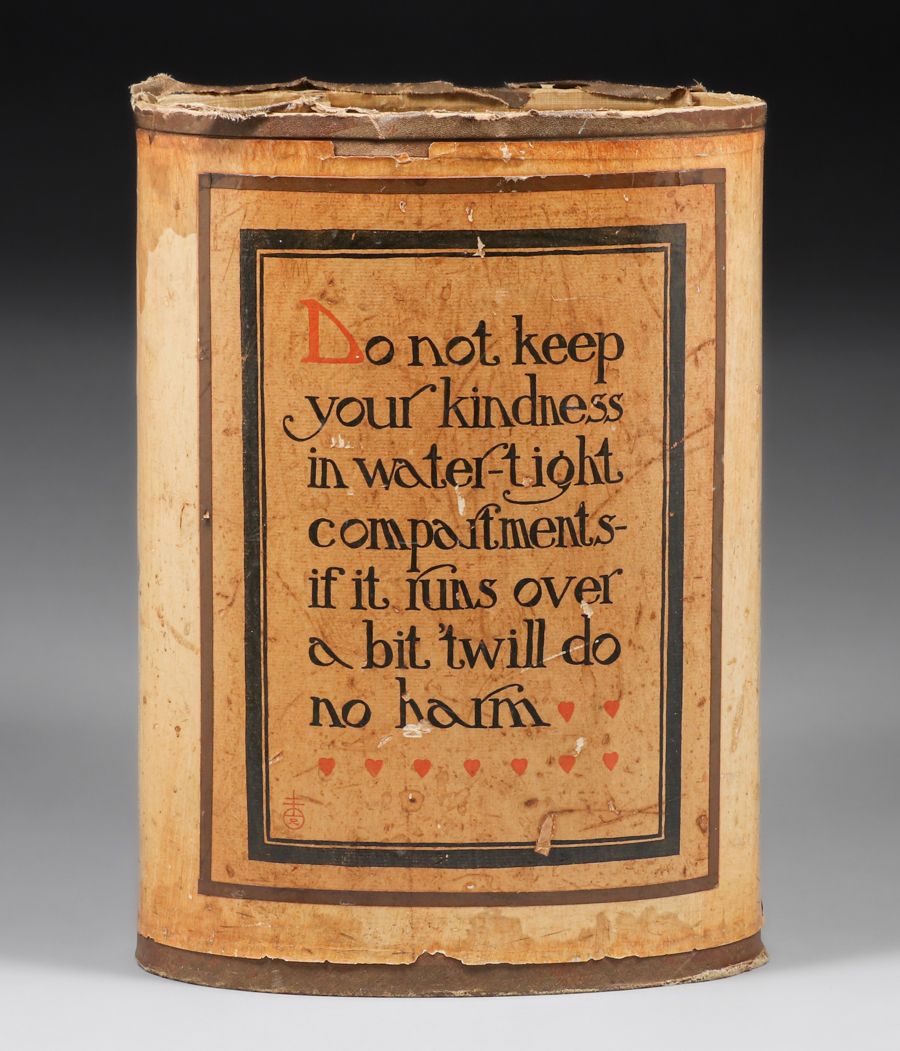 Do not keep
your kindness
in water-tight
compartments-
if it runs over
a bit 'twill do
no harm